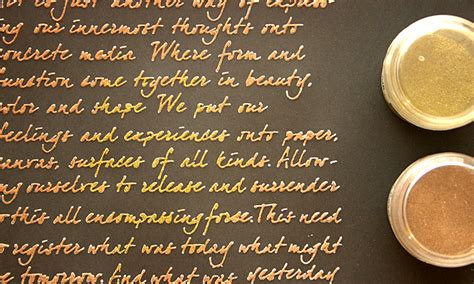 Art is just another way of express-
ing our innermost thoughts onto
concrete media. Where form and
function come together in beauty,
color and shape. We put our
feelings and experiences onto paper,
canvas, surfaces of all kinds. Allow-
ing ourselves to release and surrender
to this all encompassing forse. This need
to register what was today what might
be tomorrow. And what was yesterday